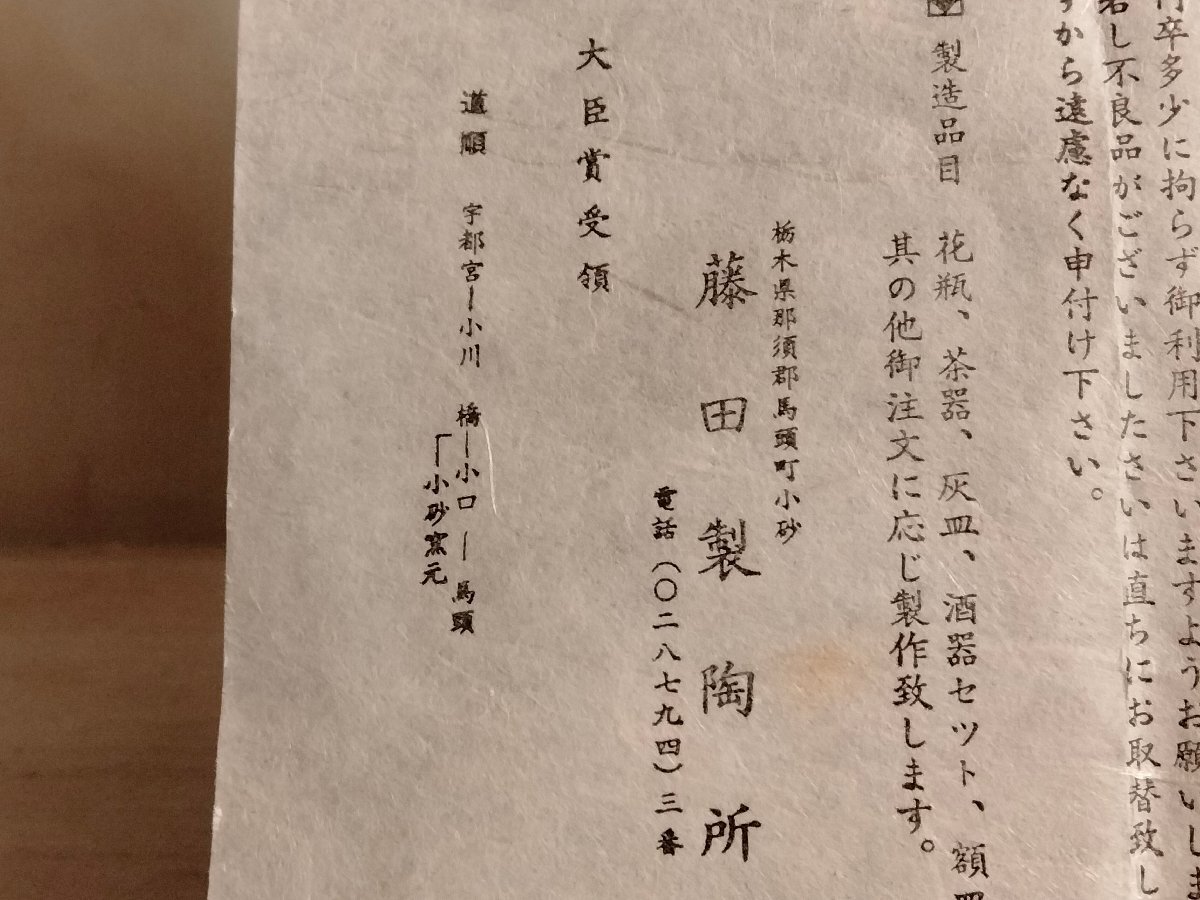 卒多少に拘らず御利用下さいますようお願いしま
し不良品がございましたさいは直ちにお取替致し
から遠慮なく申付け下さい。
製造品目 花瓶、茶器、灰皿、酒器セット、額皿
其の他御注文に応じ製作致します。
栃木県那須郡馬頭町小砂
藤田製陶所
電話(〇二八七九四)三番
大臣賞受領
道順 宇都宮ー小川 橋ー小口ー馬頭
「小砂窯元